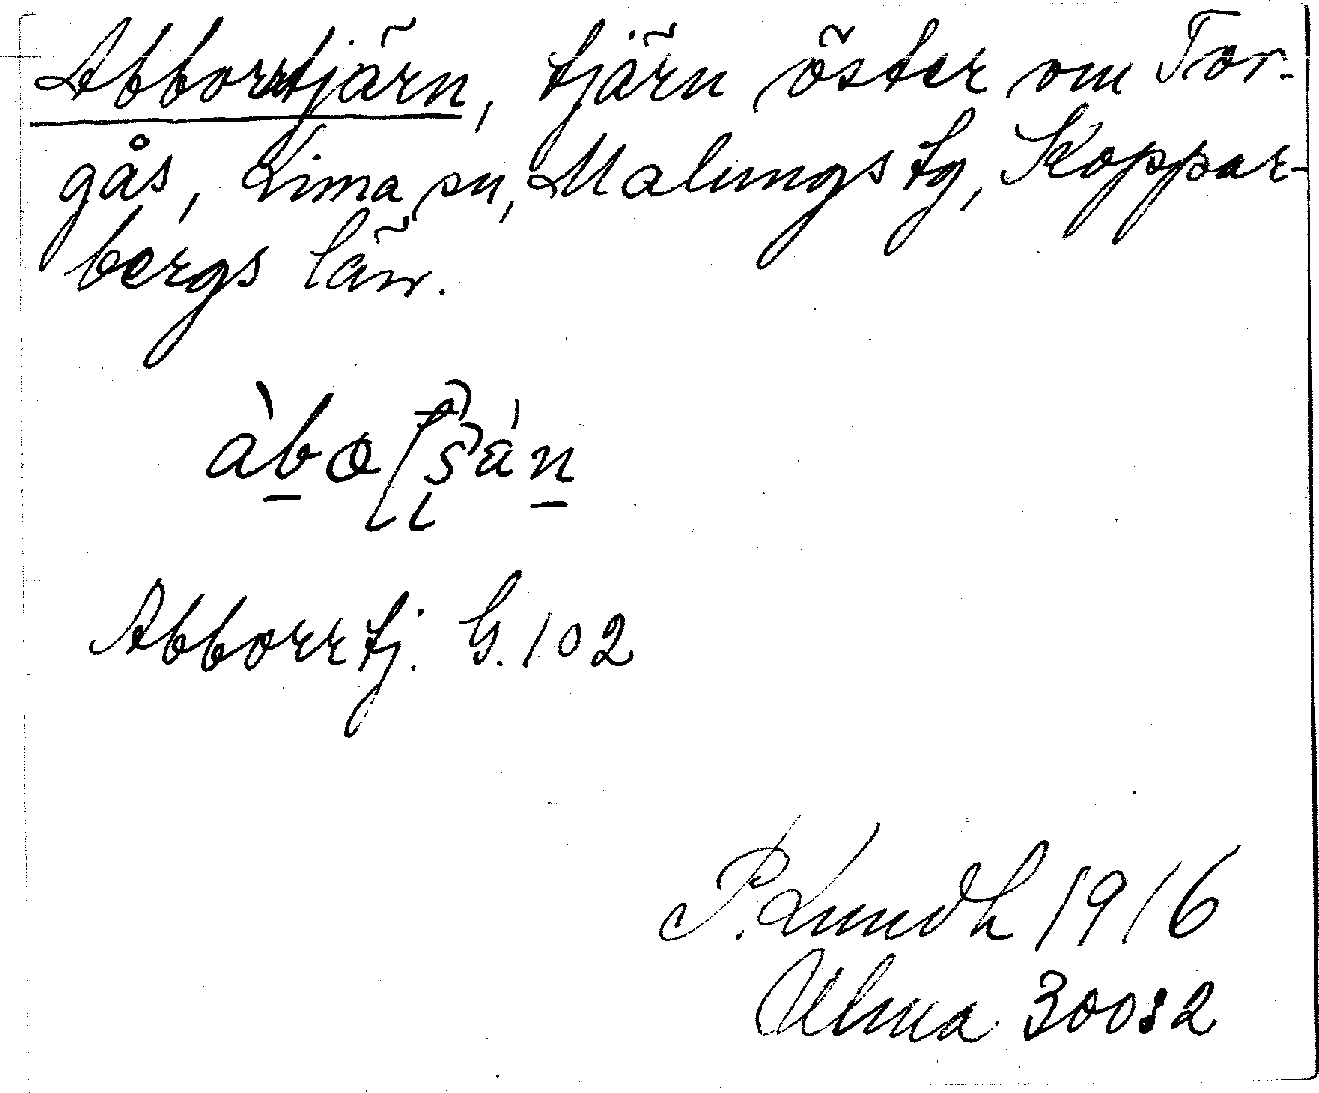 Abborrtjärn, tjärn öster om Tor-
gås, Lima sn, Malungs tg, Koppar-
bergs län.
Abborrtj. G. 102
P. Lundh 1916
Ulma 30032